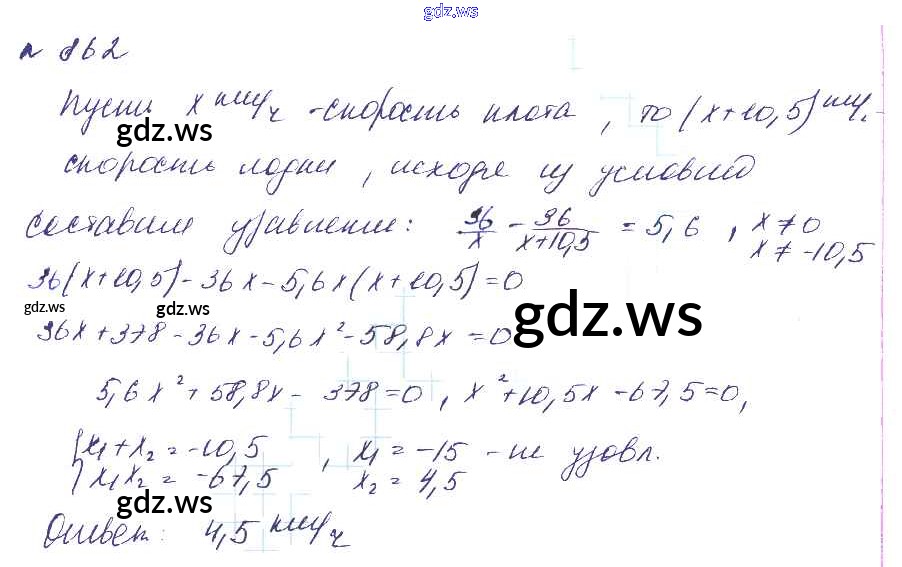 gdz.ws
n 862
Пусть x км/ч - скорость плота, то (x+10,5) км/ч -
gdz.ws
скорость лодки, исходя из условий
составим уравнение: 36/x - 36/(x+10,5) = 5,6, x ≠ 0
x ≠ -10,5
36(x+10,5) - 36x - 5,6x(x+10,5) = 0
gdz.ws gdz.ws gdz.ws
36x + 378 - 36x - 5,6x² - 58,8x = 0
5,6x² + 58,8x - 378 = 0, x² + 10,5x - 67,5 = 0,
{x₁ + x₂ = -10,5, x₁ = -15 - не удовл.
{x₁x₂ = -67,5 x₂ = 4,5
gdz.ws gdz.ws
Ответ: 4,5 км/ч
gdz.ws